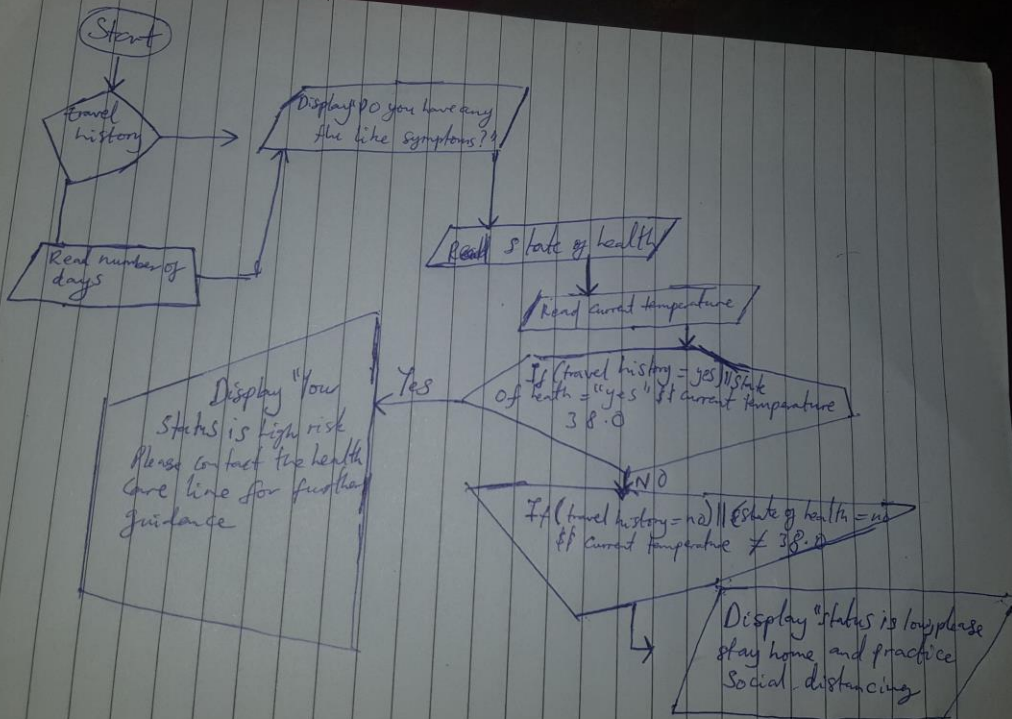 Start
travel
history
Read number of
days
Display "Do you have any
flu like symptoms?"
Read state of health
Read current temperature
If (travel history = yes) || state
of heath = "yes" $$ current temperature
38.0
Yes
Display "Your
status is high risk
Please contact the health
care line for further
guidance
NO
If (travel history = no) || (state of health = no
$$ current temperature ≠ 38.0
Display "status is low, please
stay home and practice
Social distancing